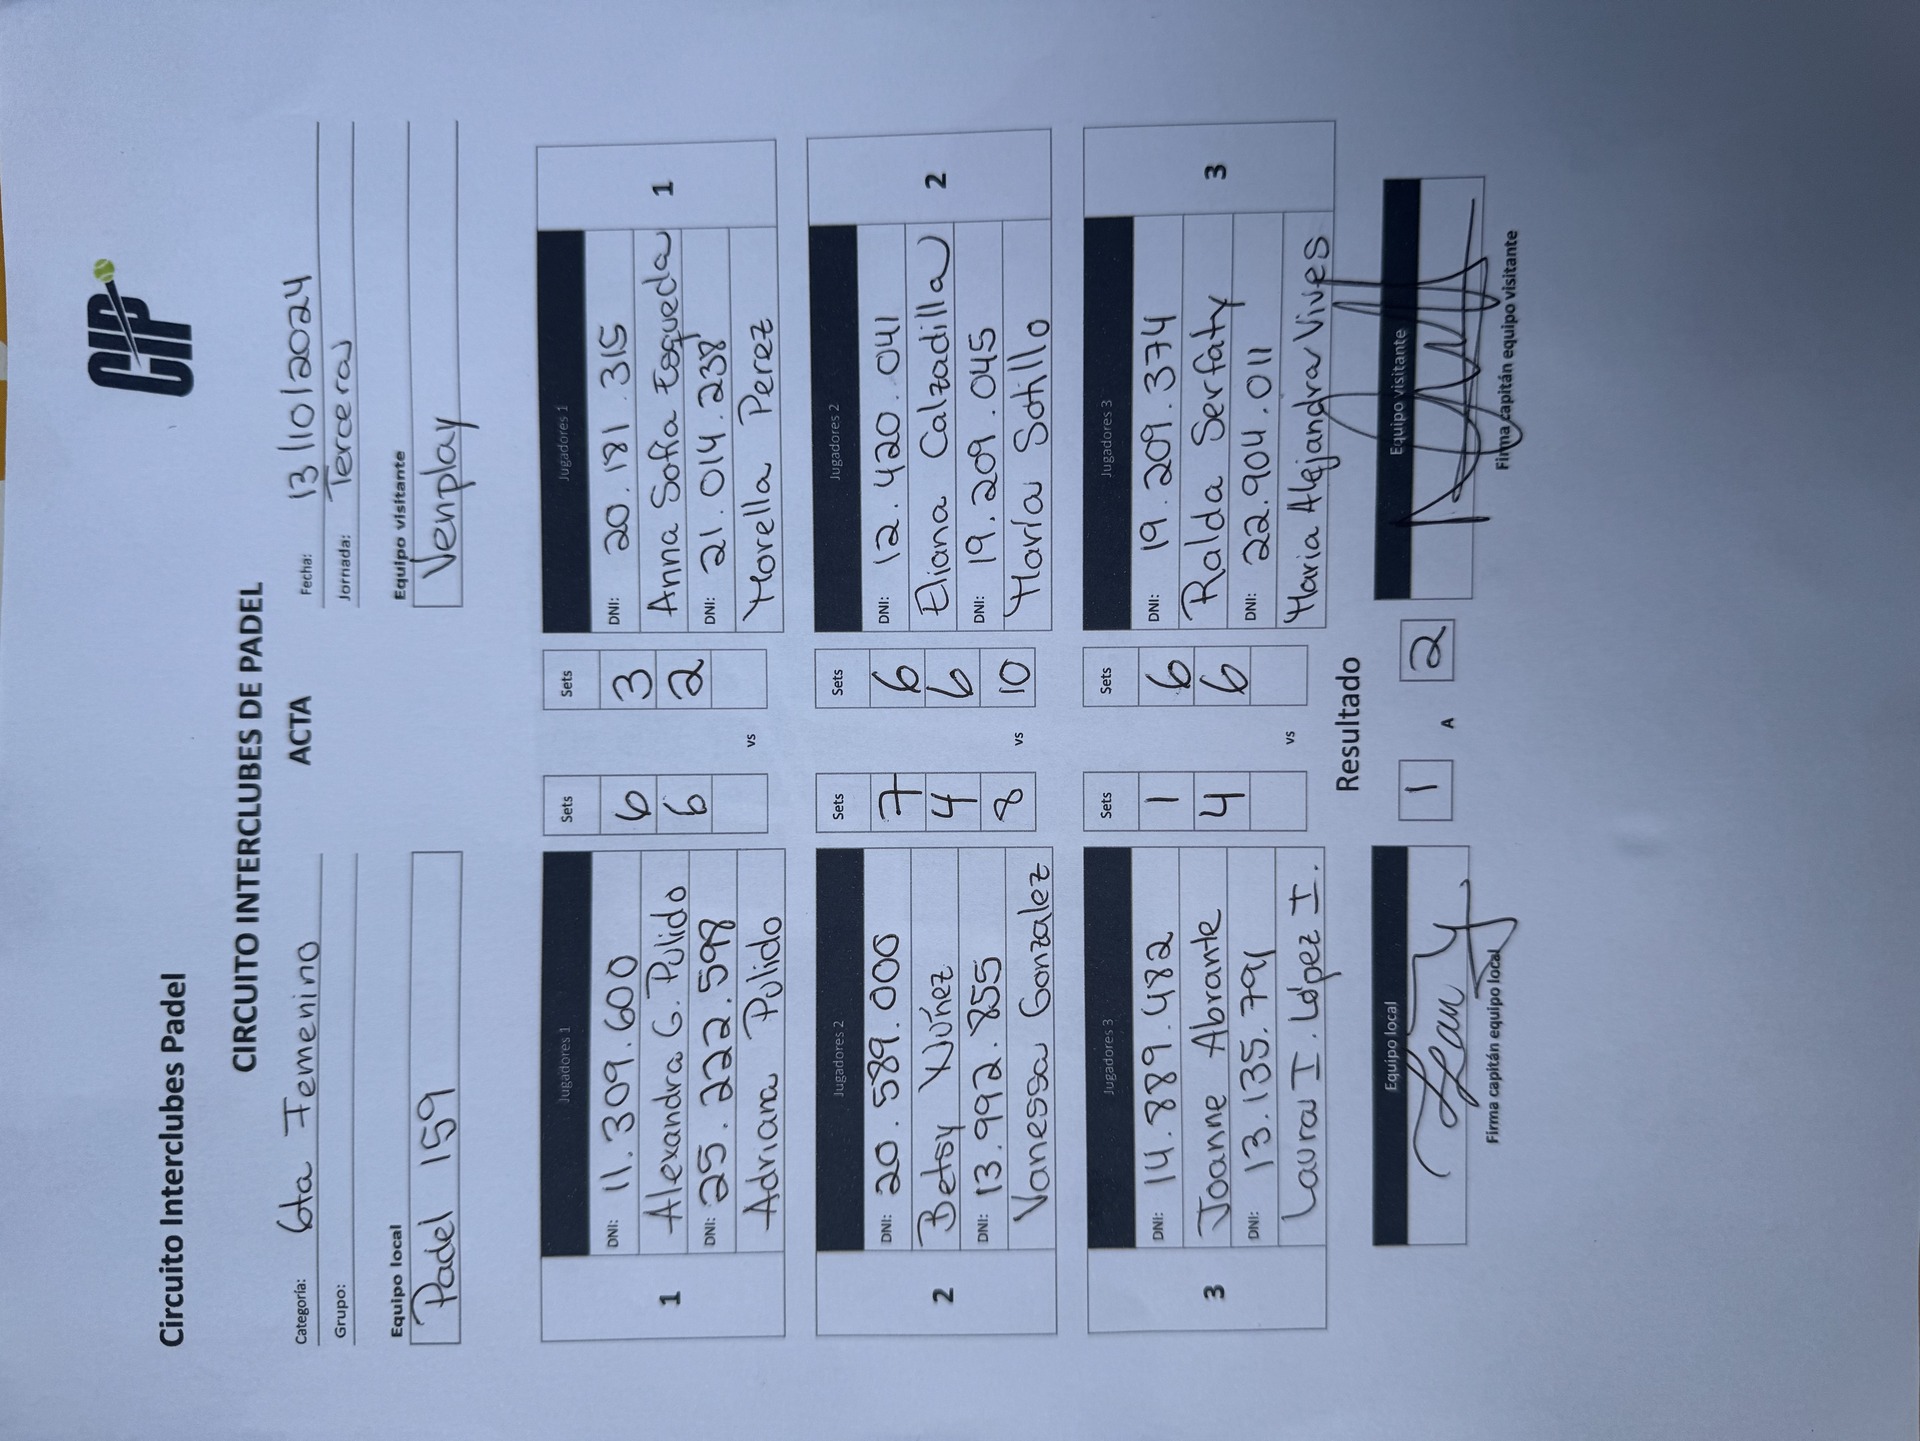 CIP
Circuito Interclubes Padel
CIRCUITO INTERCLUBES DE PADEL
ACTA
Categoría: 6ta Femenino
Fecha: 13/10/2024
Grupo:
Jornada: Tercera
Equipo local
Equipo visitante
Padel 159
Venplay
Jugadores 1 Sets Sets Jugadores 1
DNI: 11.309.600 6 3 DNI: 20.181.315
1 Alexandra G. Pulido 6 2 Anna Sofía Esqueda 1
DNI: 25.222.598 DNI: 21.014.238
Adriana Pulido vs Morella Perez
Jugadores 2 Sets Sets Jugadores 2
DNI: 20.589.000 7 6 DNI: 12.420.041
2 Betsy Núñez 4 6 Eliana Calzadilla 2
DNI: 13.992.855 8 10 DNI: 19.209.045
Vanessa Gonzalez vs María Sotillo
Jugadores 3 Sets Sets Jugadores 3
DNI: 14.889.482 1 6 DNI: 19.209.374
3 Joanne Abrante 4 6 Ralda Serfaty 3
DNI: 13.135.791 DNI: 22.904.011
Laura I. López I. vs Maria Alejandra Vives
Resultado
Equipo local 1 A 2 Equipo visitante
Firma capitán equipo local
Firma capitán equipo visitante